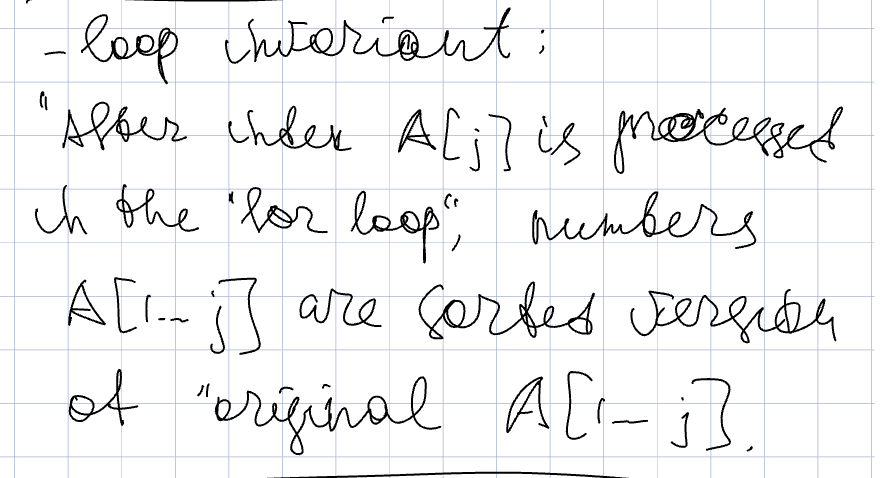 - loop invariant:
"After index A[j] is processed
in the "for loop", numbers
A[1-- j] are sorted version
of "original A[1- j].